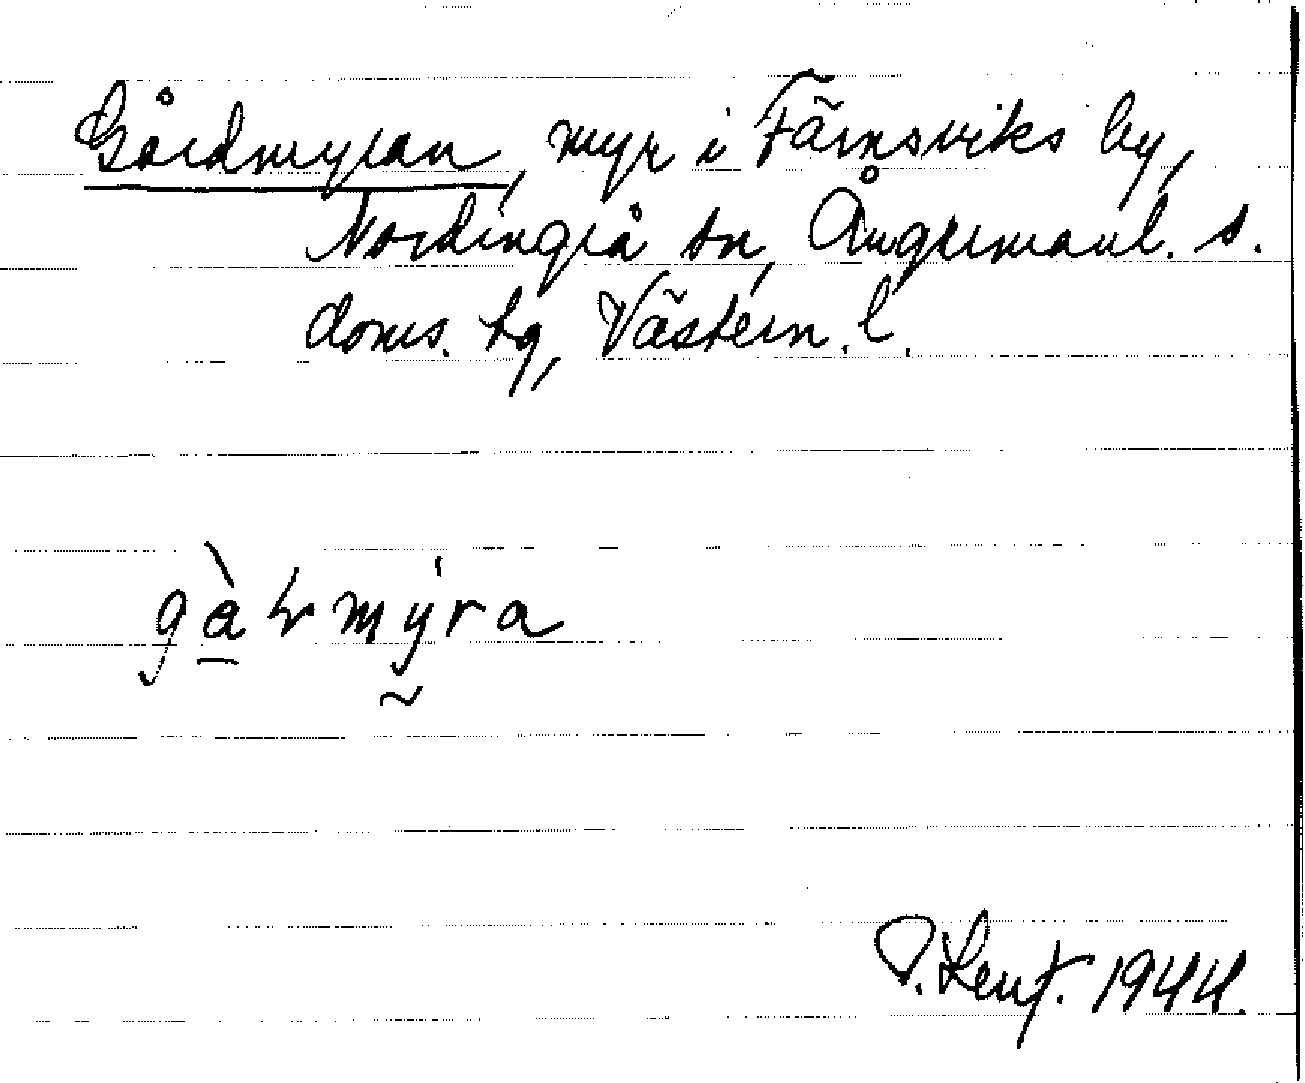 Gårdmyran, myr i Färnsviks by,
Nordingrå sn, Ångermanl. s.
doms. tg, Västern. l.
P. Lenf. 1944.